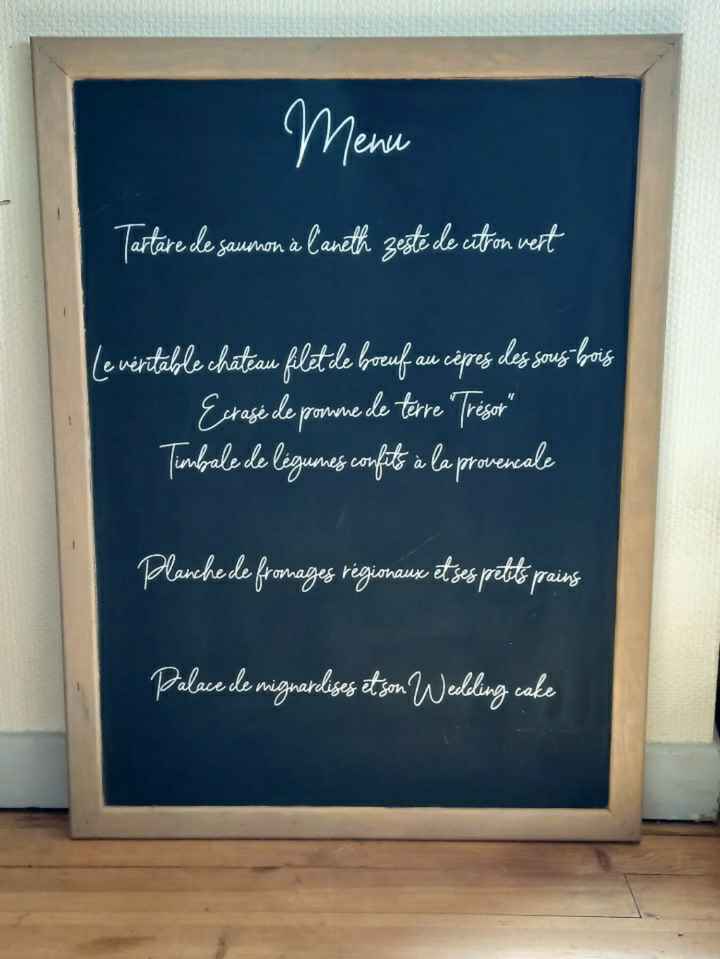 Menu
Tartare de saumon à l'aneth zeste de citron vert
Le véritable château filet de boeuf au cêpes des sous-bois
Ecrasé de pomme de terre "Trésor"
Timbale de légumes confits à la provencale
Planche de fromages régionaux et ses petits pains
Palace de mignardises et son Wedding cake